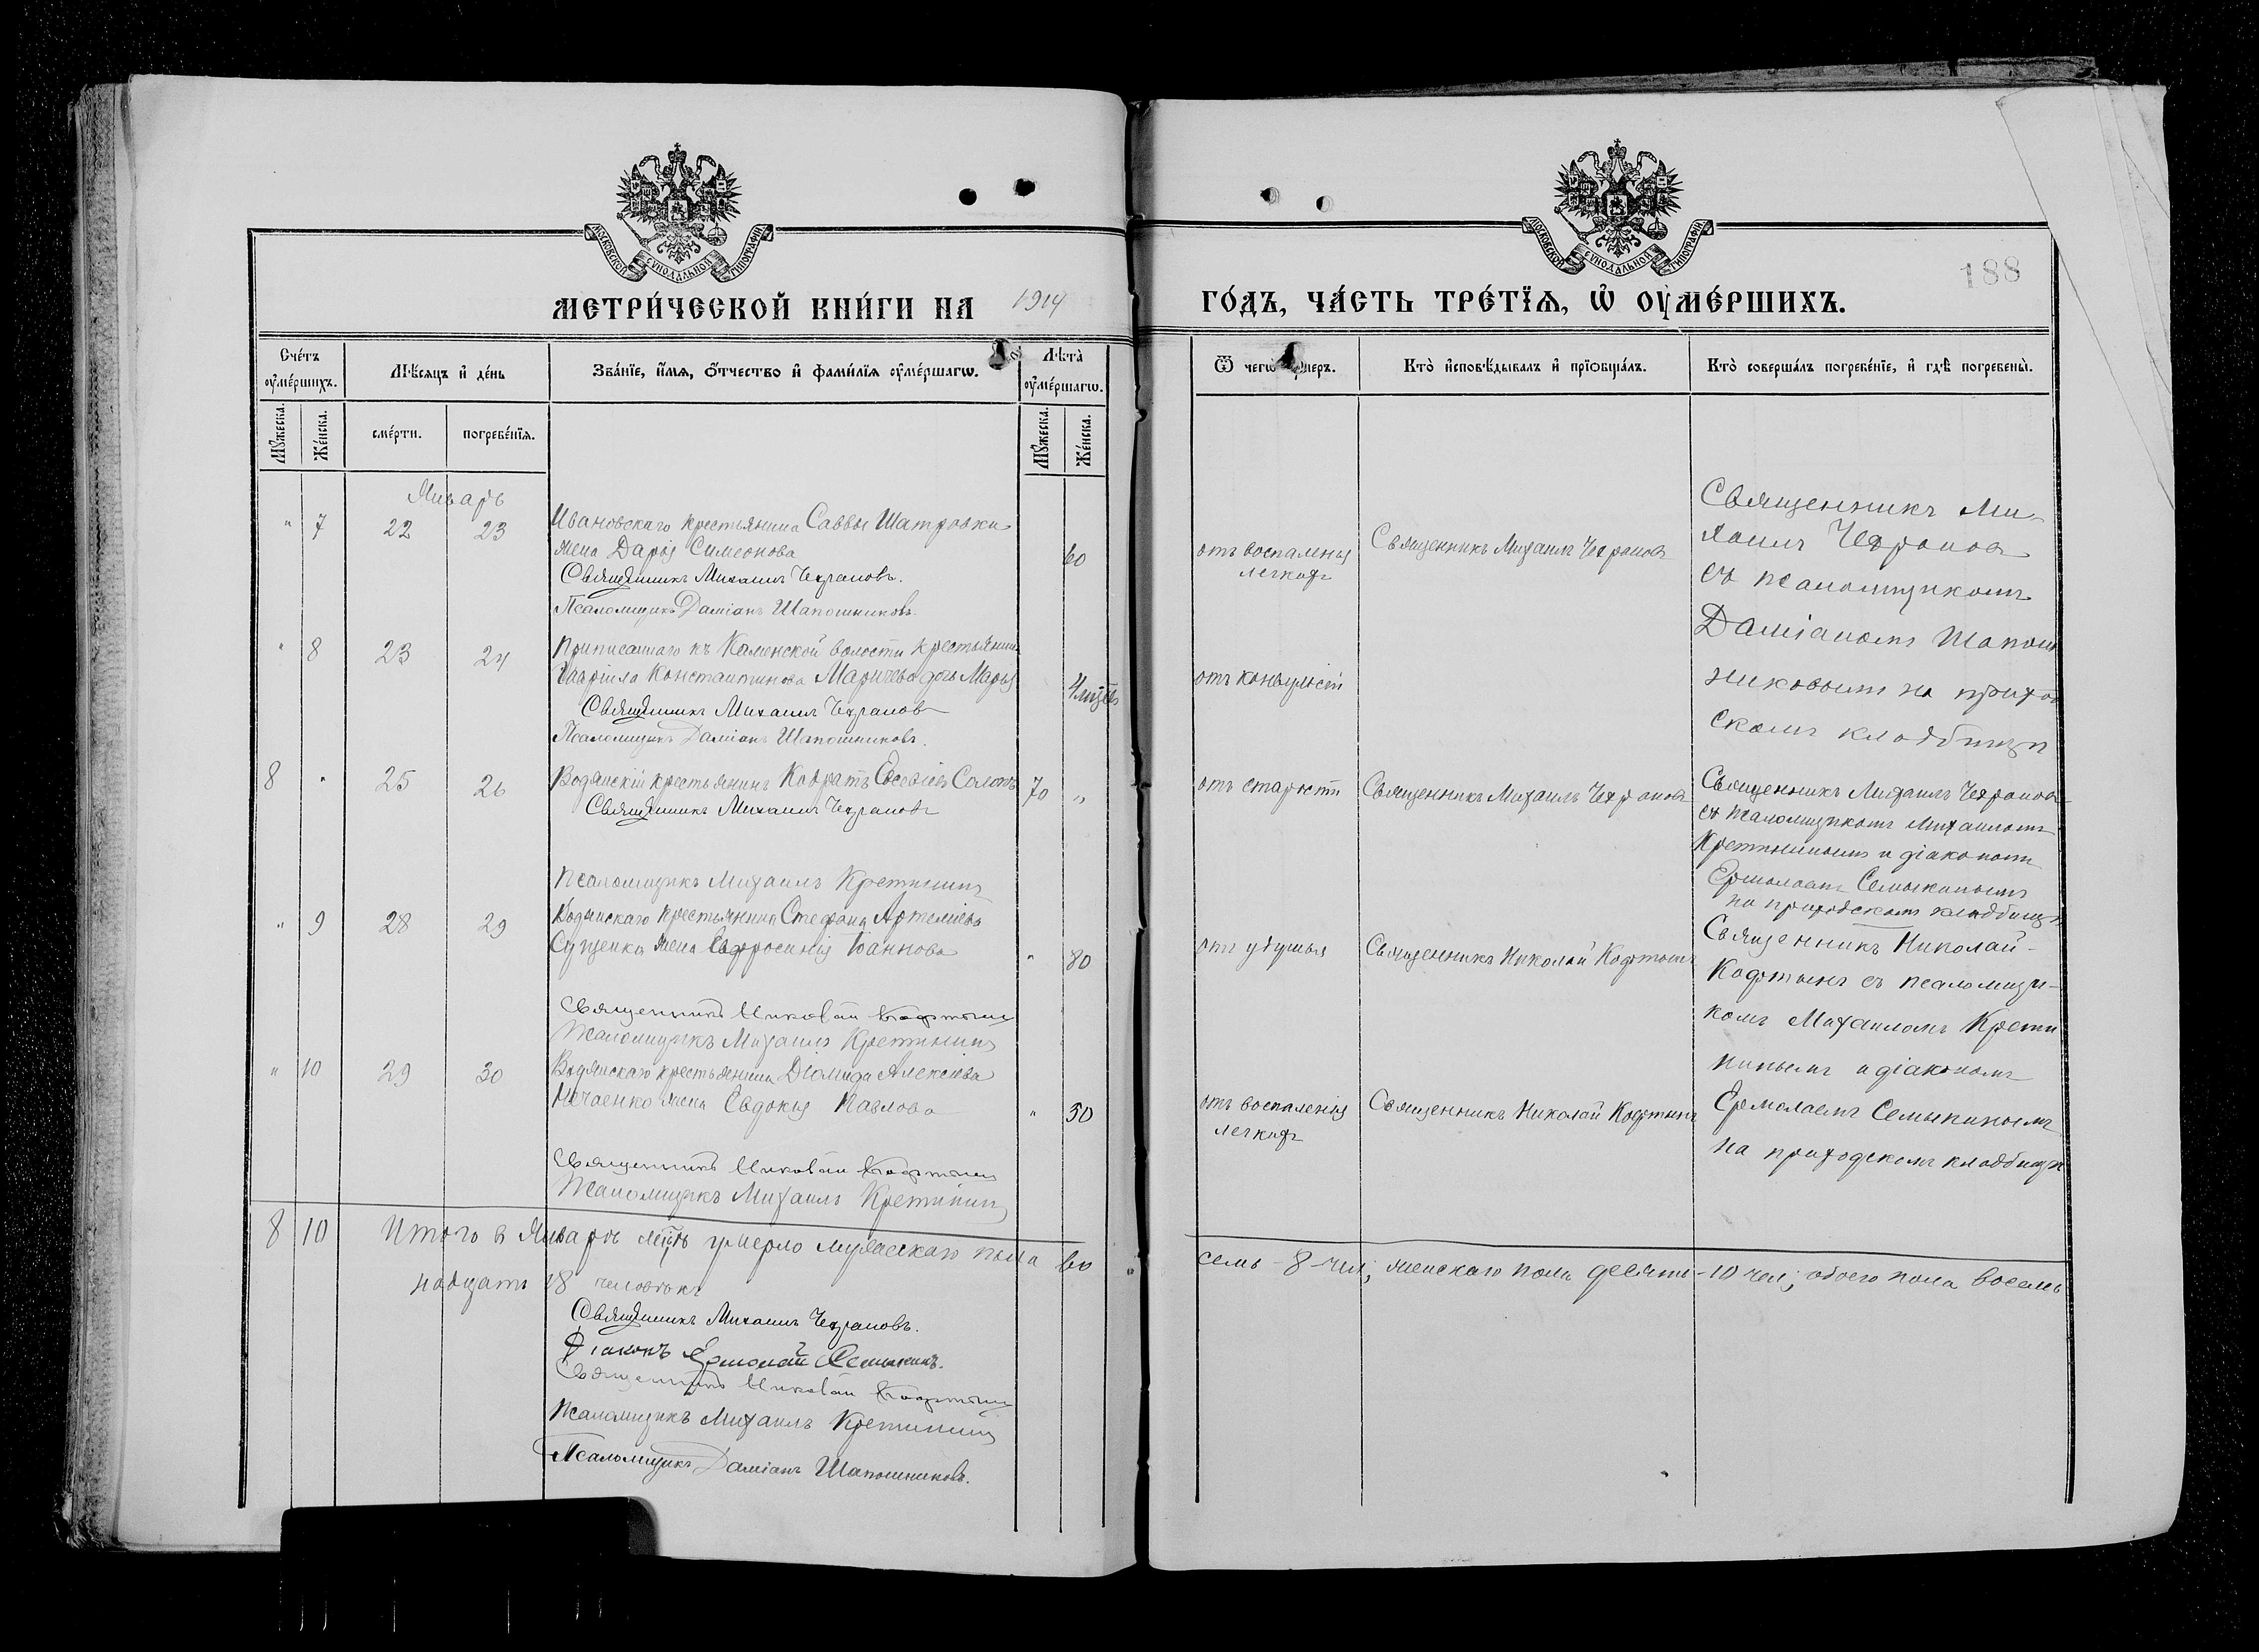 МОСКОВСКОЙ СУНОДАЛЬНОЙ ТИПОГРАФІИ
МОСКОВСКОЙ СУНОДАЛЬНОЙ ТИПОГРАФІИ
188
МЕТРИ́ЧЕСКОЙ КНИ́ГИ НА 1914 ГО́ДЪ, ЧА́СТЬ ТРЕ́ТЇѦ, Ѡ҆ ОУ҆МЕ́РШИХЪ.
Сче́тъ оу҆ме́ршихъ.
Мꙋ́жеска.
Же́нска.
Мѣ́сяцъ и҆ де́нь
сме́рти.
погребе́нїѧ.
Зва́нїе, и҆́мѧ, ѻ҆́тчество и҆ фами́лїѧ оу҆ме́ршагѡ.
Лѣ́та оу҆ме́ршагѡ.
Мꙋ́жеска.
Же́нска.
Ѿ чегѡ̀ оу҆́меръ.
Кто̀ и҆сповѣ́дывалъ и҆ прїѡбща́лъ.
Кто̀ соверша́лъ погребе́нїе, и҆ гдѣ̀ погребены̀.
Январь
" 7 22 23 Ивановскаго крестьянина Саввы Шатровки
жена Дарія Симеонова 60
Священникъ Михаилъ Чехрановъ.
Псаломщикъ Даміанъ Шапошниковъ.
отъ воспаленія
легкихъ
Священникъ Михаилъ Чехрановъ
Священникъ Ми-
хаилъ Чехрановъ
съ псаломщикомъ
Даміаномъ Шапош
никовымъ на приход
скомъ кладбищѣ
" 8 23 24 Приписаннаго къ Каменской волости крестьянина
Гавріила Константинова дочь Марія 4 мѣс
Священникъ Михаилъ Чехрановъ
Псаломщикъ Даміанъ Шапошниковъ.
отъ конвульсій
8 " 25 26 Водянскій крестьянинъ Кодратъ Евсевіевъ 70 "
Священникъ Михаилъ Чехрановъ
Псаломщикъ Михаилъ Кретининъ
отъ старости
Священникъ Михаилъ Чехрановъ
Священникъ Михаилъ Чехрановъ
съ псаломщикомъ Михаиломъ
Кретининымъ и діакономъ
Ермолаемъ Семыкинымъ
на приходскомъ кладбищѣ
" 9 28 29 Водянскаго крестьянина Стефана Артеміева
Сущенка жена Евфросинія Іоаннова " 80
Священникъ Николай Кафтынъ
Псаломщикъ Михаилъ Кретининъ
отъ удушья
Священникъ Николай Кафтынъ
Священникъ Николай
Кафтынъ съ псаломщи-
комъ Михаиломъ Крети
нинымъ и діакономъ
Ермолаемъ Семыкинымъ
на приходскомъ кладбищѣ
" 10 29 30 Водянскаго крестьянина Діомида Алексіева
Нечаенко жена Евдокія Павлова " 50
Священникъ Николай Кафтынъ
Псаломщикъ Михаилъ Кретининъ
отъ воспаленія
легкихъ
Священникъ Николай Кафтынъ
8 10 Итого въ Январѣ мѣсцѣ умерло мужескаго пола во семь - 8 чел; женскаго пола десять - 10 чел; обоего пола восемь
надцать 18 человѣкъ
Священникъ Михаилъ Чехрановъ.
Діаконъ Ермолай Семыкинъ.
Священникъ Николай Кафтынъ
Псаломщикъ Михаилъ Кретининъ
Псаломщикъ Даміанъ Шапошниковъ.